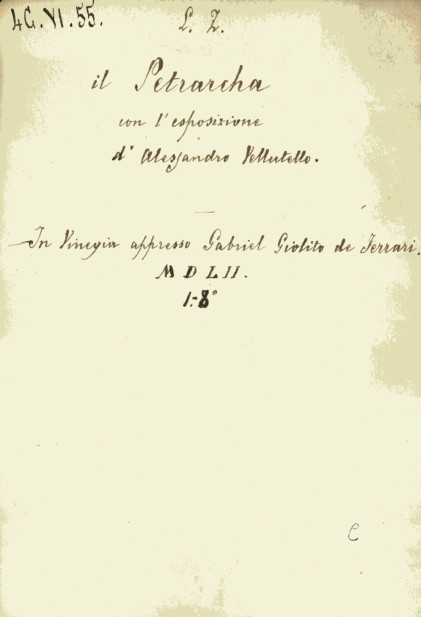 4G.VI.55.
L. Z.
il Petrarcha
con l'esposizione
d' Alessandro Vellutello.
In Vinegia appresso Gabriel Giolito de Ferrari.
MDLII.
1:8°
C